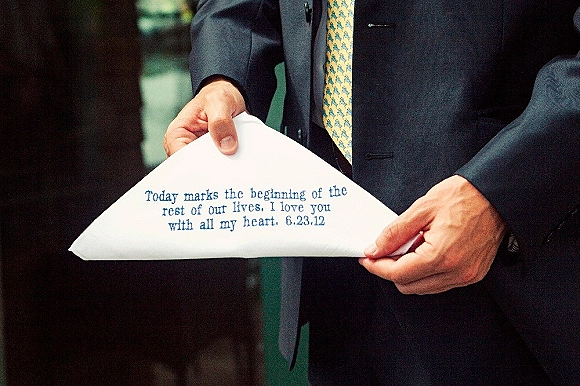 Today marks the beginning of the
rest of our lives. I love you
with all my heart. 6.23.12